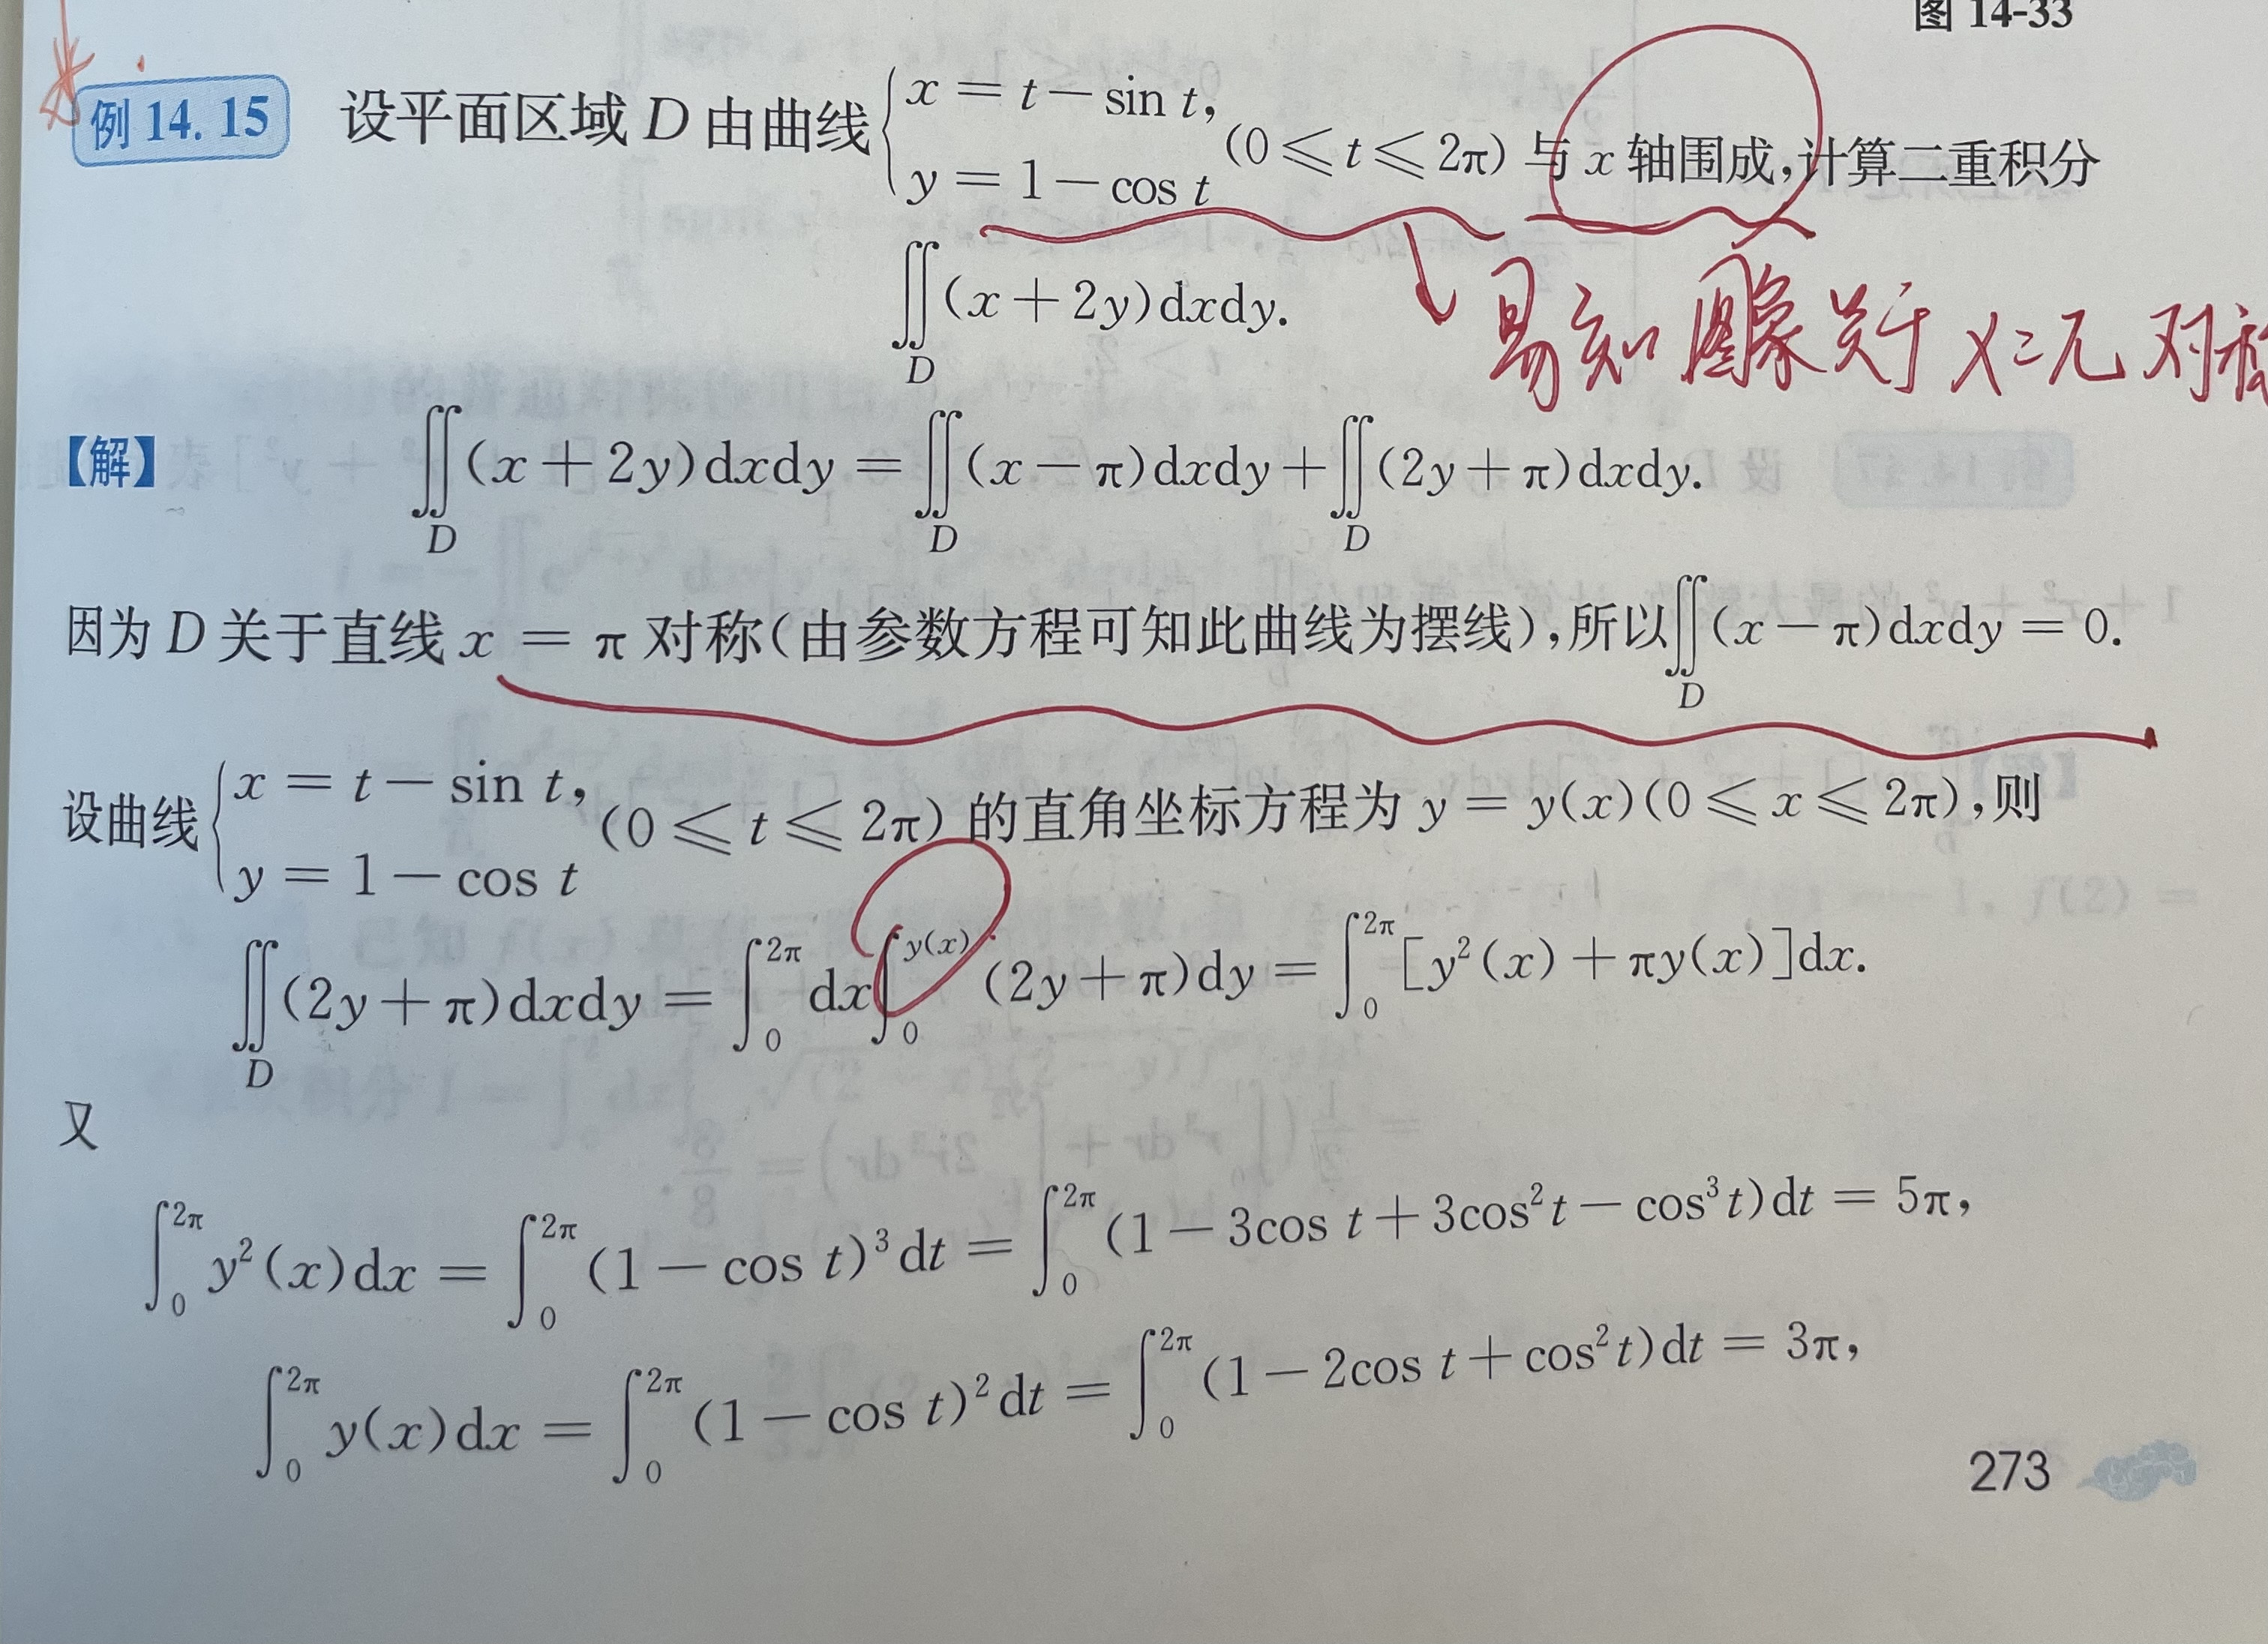 图 14-33
例 14.15 设平面区域 D 由曲线 { x = t − sin t, y = 1 − cos t (0 ⩽ t ⩽ 2π) 与 x 轴围成,计算二重积分
∬_D (x + 2y)dxdy.
易知 图象关于 x=π 对称
【解】 ∬_D (x + 2y)dxdy = ∬_D (x − π)dxdy + ∬_D (2y + π)dxdy.
因为 D 关于直线 x = π 对称(由参数方程可知此曲线为摆线),所以 ∬_D (x − π)dxdy = 0.
设曲线 { x = t − sin t, y = 1 − cos t (0 ⩽ t ⩽ 2π) 的直角坐标方程为 y = y(x)(0 ⩽ x ⩽ 2π),则
∬_D (2y + π)dxdy = ∫_0^{2π} dx ∫_0^{y(x)} (2y + π)dy = ∫_0^{2π} [y²(x) + πy(x)]dx.
又
∫_0^{2π} y²(x)dx = ∫_0^{2π} (1 − cos t)³dt = ∫_0^{2π} (1 − 3cos t + 3cos²t − cos³t)dt = 5π,
∫_0^{2π} y(x)dx = ∫_0^{2π} (1 − cos t)²dt = ∫_0^{2π} (1 − 2cos t + cos²t)dt = 3π,
273